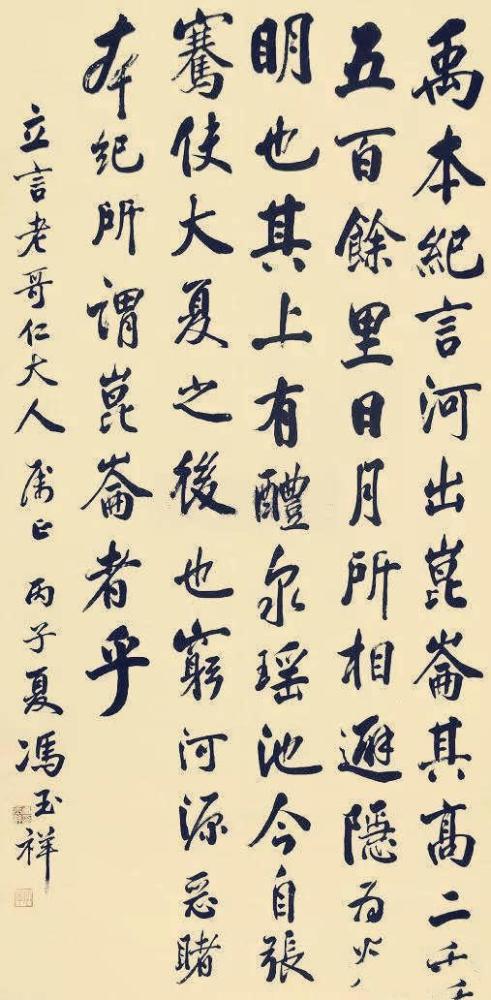 禹本紀言河出崑崙其高二千
五百餘里日月所相避隱為光
明也其上有醴泉瑶池今自張
騫使大夏之後也窮河源惡睹
本紀所謂崑崙者乎
立言老哥仁大人 属正 丙子夏 馮玉祥